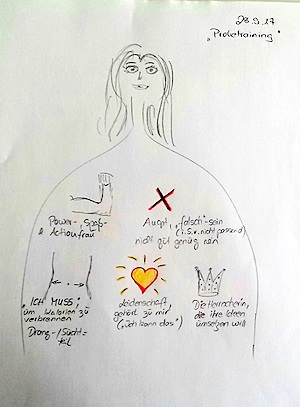 28.9.17
"Probetraining"
Power-, Spaß-
& Actionfrau
Angst, "falsch"-sein
(i.S.v. nicht passend)
nicht gut genug sein
"ICH MUSS",
um Kalorien zu
verbrennen
Drang-/Sucht=
Leidenschaft,
gehört zu mir,
("Ich kann das")
Die Herrscherin,
die ihre Ideen
umsetzen will